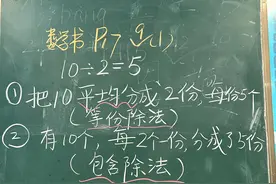 数学书 P17 9(1)
10÷2=5
①把10平均分成2份,每份5个
(等份除法)
②有10个,每2个一份,分成了5份
(包含除法)